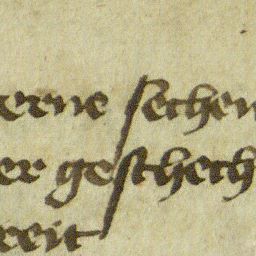 erne sechen
er geschech
reit